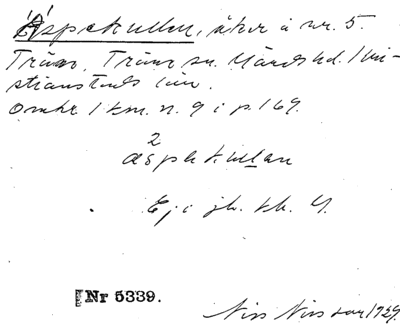 Äspekullen, åker å nr. 5.
Träne, Träne sn. Gärds hd. Kri-
stianstads län.
Omkr 1 km. n. 9 i p. 169.
2
äspekullan
Ej i jb. kb. 4.
Nr 5339.
Nils Nilsson 1929.